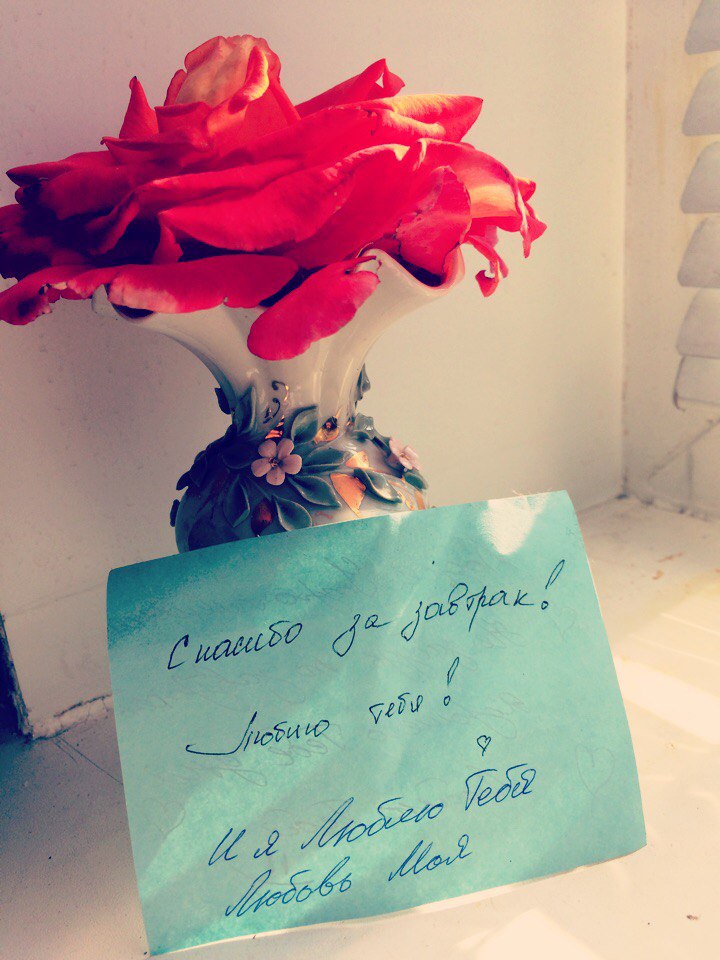 Спасибо за завтрак!
Люблю тебя!
И я Люблю Тебя
Любовь Моя